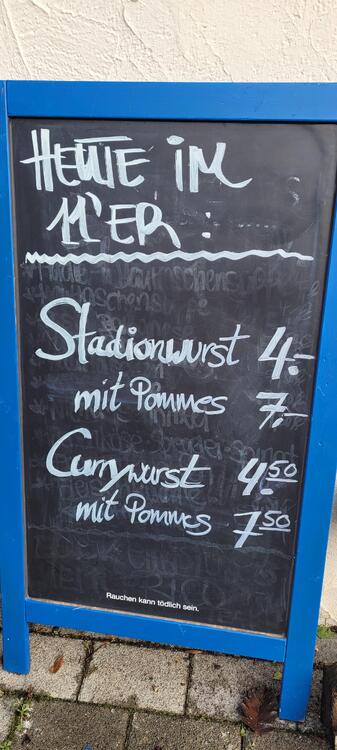 HEUTE IM
11'ER :
Stadionwurst 4.-
mit Pommes 7.-
Currywurst 4.50
mit Pommes 7.50
Rauchen kann tödlich sein.